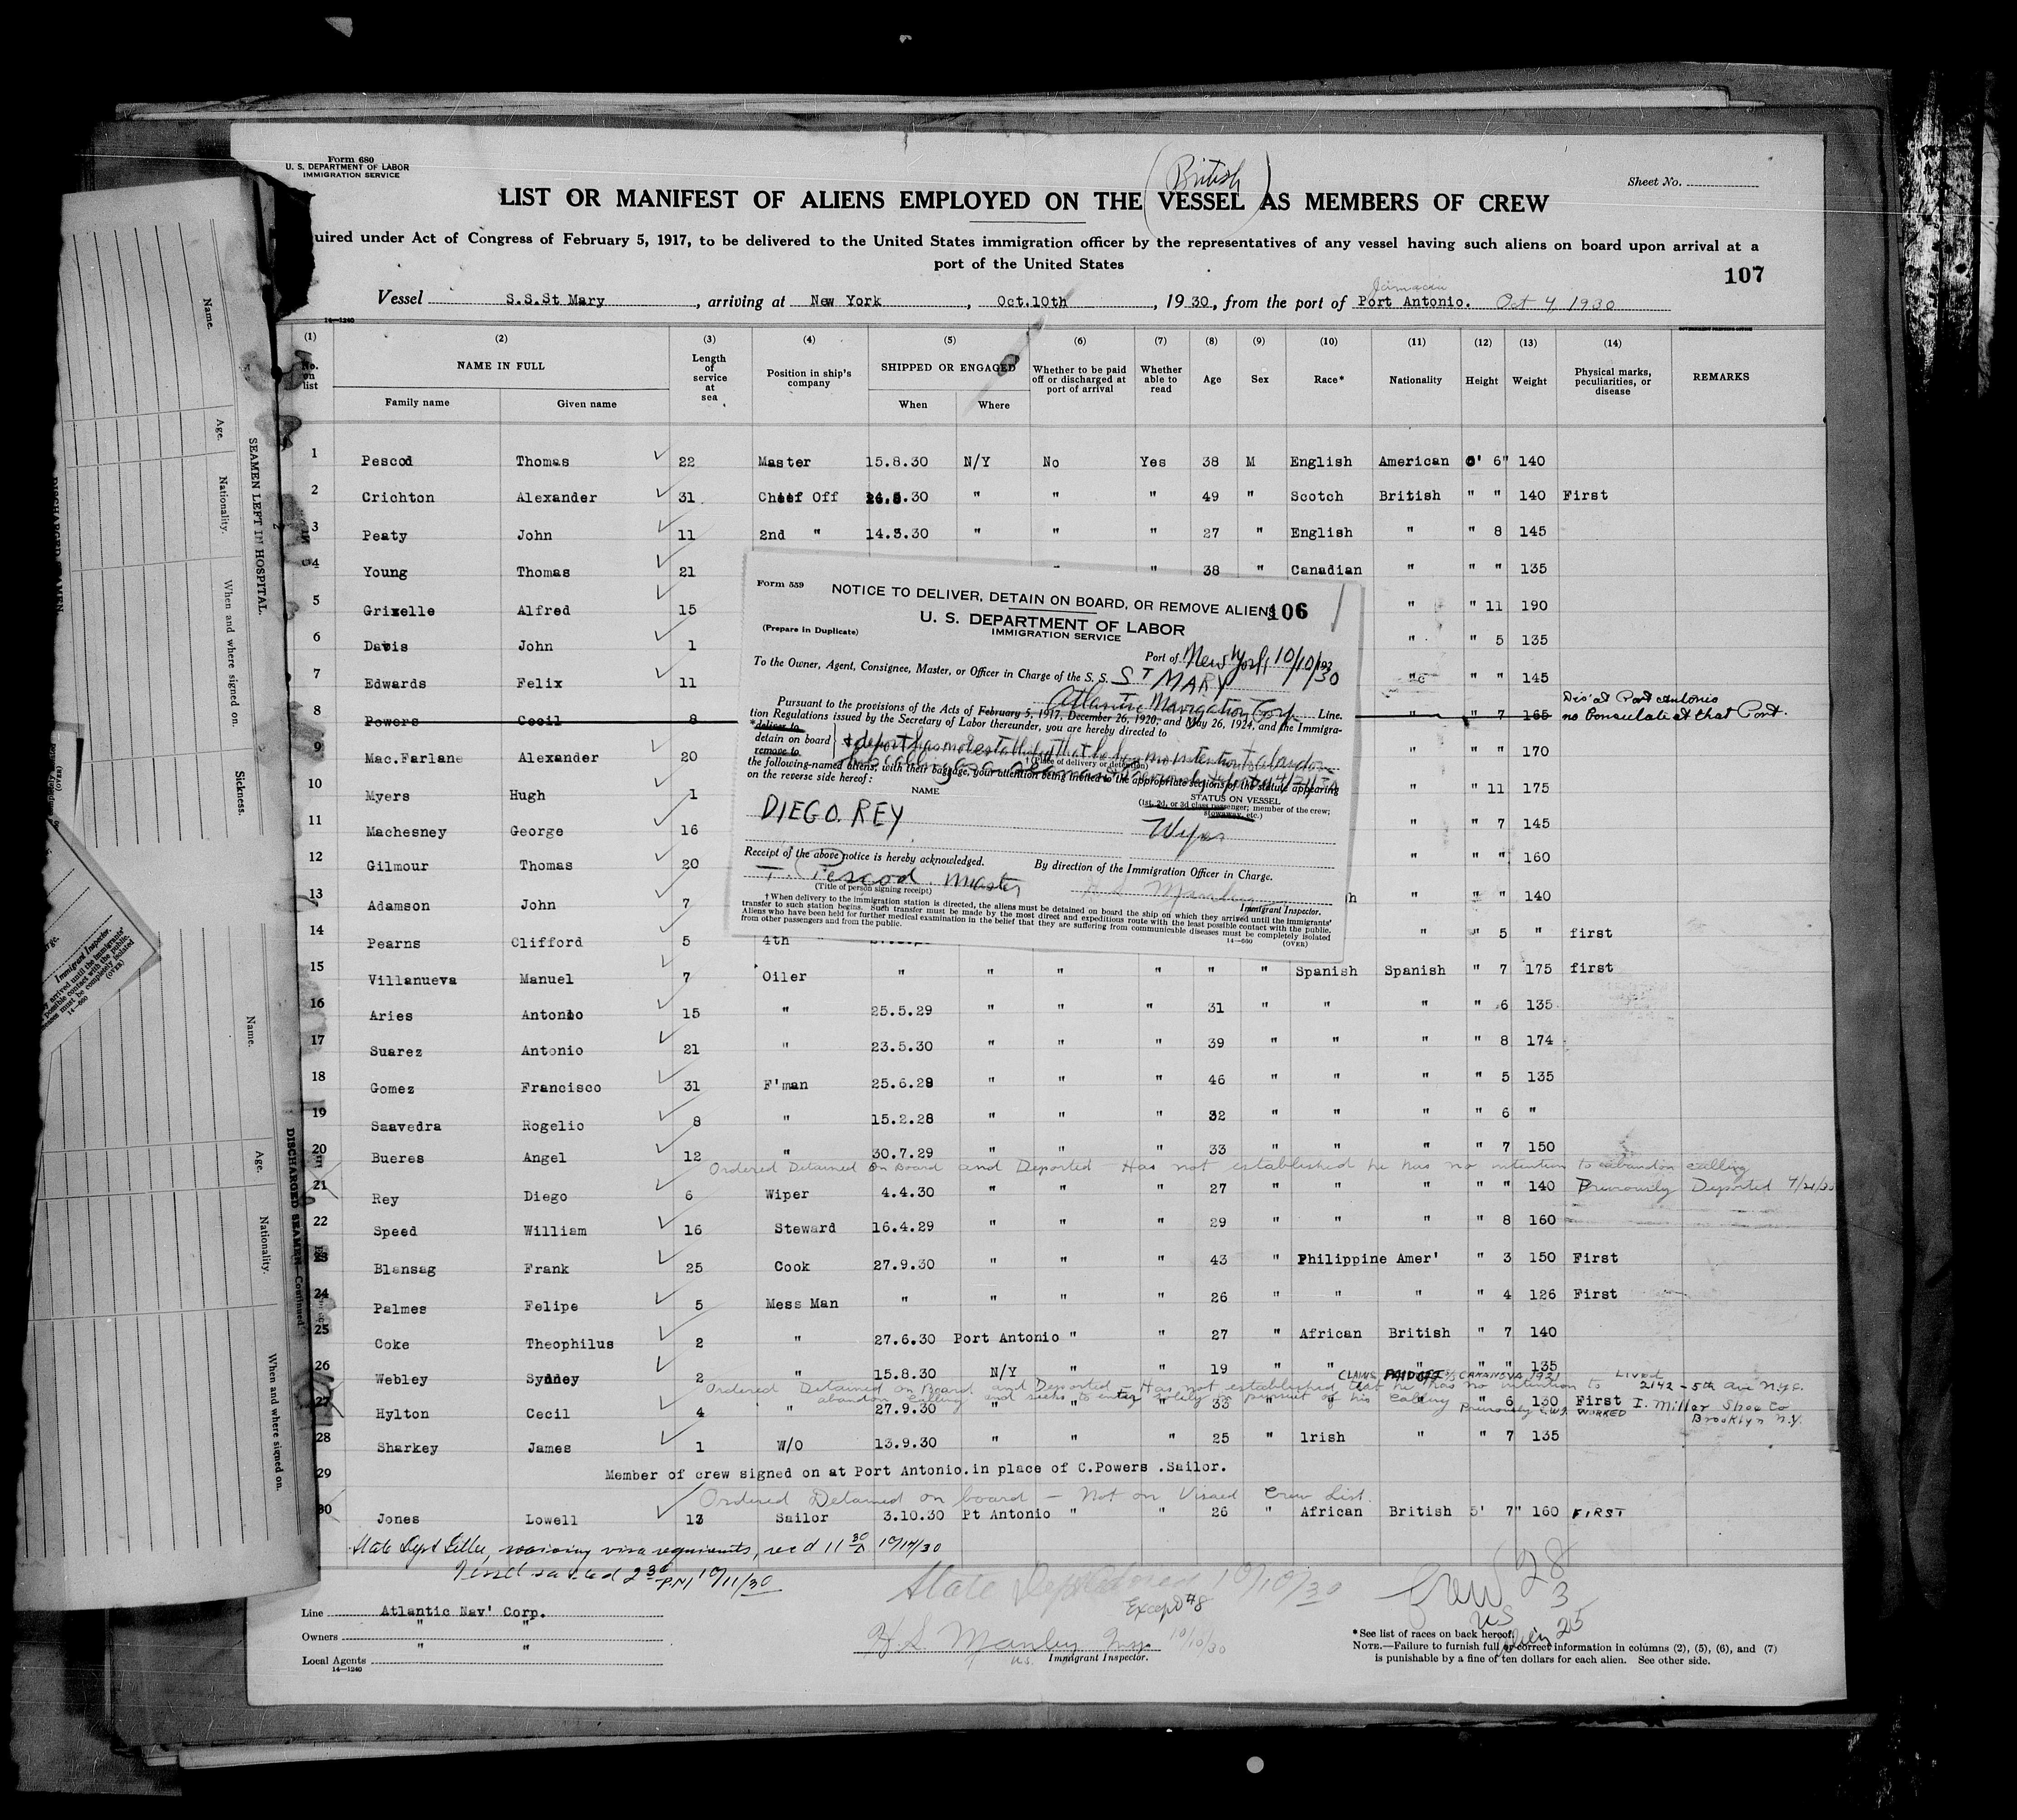 Form 680
U. S. DEPARTMENT OF LABOR
IMMIGRATION SERVICE
(British)
Sheet No.
LIST OR MANIFEST OF ALIENS EMPLOYED ON THE VESSEL AS MEMBERS OF CREW
uired under Act of Congress of February 5, 1917, to be delivered to the United States immigration officer by the representatives of any vessel having such aliens on board upon arrival at a
port of the United States
107
Jamaica
Vessel S.S.St Mary, arriving at New York, Oct.10th, 1930, from the port of Port Antonio. Oct 4, 1930
14—1240
(1) (2) (3) (4) (5) (6) (7) (8) (9) (10) (11) (12) (13) (14)
No. on list NAME IN FULL Family name Given name Length of service at sea Position in ship's company SHIPPED OR ENGAGED When Where Whether to be paid off or discharged at port of arrival Whether able to read Age Sex Race* Nationality Height Weight Physical marks, peculiarities, or disease REMARKS
1 Pescod Thomas 22 Master 15.8.30 N/Y No Yes 38 M English American 5' 6" 140
2 Crichton Alexander 31 Cheef Off .30 " " " 49 " Scotch British " " 140 First
3 Peaty John 11 2nd " 14.5.30 " " " 27 " English " " 8 145
4 Young Thomas 21 " 38 " Canadian " " " 135
5 Grixelle Alfred 15 " " 11 190
6 Davis John 1 " " 5 135
7 Edwards Felix 11 " " " 145
8 Powers Cecil 8 " " 7 165 Dis' at Port Antonio
no Consulate at that Port.
9 Mac.Farlane Alexander 20 " " " 170
10 Myers Hugh 1 " " 11 175
11 Machesney George 16 " " 7 145
12 Gilmour Thomas 20 " " " 160
13 Adamson John 7 h " " " 140
14 Pearns Clifford 5 4th " " " 5 " first
15 Villanueva Manuel 7 Oiler " " " " " " Spanish Spanish " 7 175 first
16 Aries Antonio 15 " 25.5.29 " " " 31 " " " " 6 135
17 Suarez Antonio 21 " 23.5.30 " " " 39 " " " " 8 174
18 Gomez Francisco 31 F'man 25.6.29 " " " 46 " " " " 5 135
19 Saavedra Rogelio 8 " 15.2.28 " " " 32 " " " " 6 "
20 Bueres Angel 12 " 30.7.29 " " " 33 " " " " 7 150
Ordered Detained on Board and Deported - Has not established he has no intention to abandon calling
21 Rey Diego 6 Wiper 4.4.30 " " " 27 " " " " " 140 Previously Deported 4/21/30
22 Speed William 16 Steward 16.4.29 " " " 29 " " " " 8 160
23 Blansag Frank 25 Cook 27.9.30 " " " 43 " Philippine Amer' " 3 150 First
24 Palmes Felipe 5 Mess Man " " " " 26 " " " " 4 126 First
25 Coke Theophilus 2 " 27.6.30 Port Antonio " " 27 " African British " 7 140
26 Webley Sydney 2 " 15.8.30 N/Y " " 19 " " " " " 135
CLAIMS S/S CARANOVA 1921 LIVED
Ordered Detained on Board and Deported - Has not established that he has no intention to 2142 - 5th Ave N.Y.C.
abandon calling and seeks to enter solely in pursuit of his calling Previously
27 Hylton Cecil 4 " 27.9.30 " " " 33 " " " " 6 130 First WORKED I. Miller Shoe Co
Brooklyn N.Y.
28 Sharkey James 1 W/O 13.9.30 " " " 25 " Irish " " 7 135
29 Member of crew signed on at Port Antonio.in place of C.Powers .Sailor.
Ordered Detained on board - Not on Visaed Crew List.
30 Jones Lowell 13 Sailor 3.10.30 Pt Antonio " " 26 " African British 5' 7" 160 FIRST
State Dept Letter, waiving visa requirements, rec'd 11 30 A 10/14/30
Vessel sailed 2 30 PM 10/11/30
State Dept 10/10/30
Except #8
Crew 28
US 3
Alien 25
Line Atlantic Nav' Corp.
Owners " "
Local Agents " "
14—1240
H.S. Manley Insp. 10/10/30
U.S. Immigrant Inspector.
*See list of races on back hereof.
NOTE.—Failure to furnish full or correct information in columns (2), (5), (6), and (7)
is punishable by a fine of ten dollars for each alien. See other side.
Form 559
NOTICE TO DELIVER, DETAIN ON BOARD, OR REMOVE ALIENS
106
U. S. DEPARTMENT OF LABOR
IMMIGRATION SERVICE
(Prepare in Duplicate)
Port of New York, 10/10/30, 192
To the Owner, Agent, Consignee, Master, or Officer in Charge of the S. S. ST MARY
Atlantic Navigation Corp. Line.
Pursuant to the provisions of the Acts of February 5, 1917, December 26, 1920, and May 26, 1924, and the Immigra-
tion Regulations issued by the Secretary of Labor thereunder, you are hereby directed to
*deliver to
detain on board
remove to
& deport has not established that he has no intention to abandon
his calling
†(Place of delivery or detention)
the following-named aliens, with their baggage, your attention being invited to the appropriate sections of the statute appearing
on the reverse side hereof:
NAME
STATUS ON VESSEL
(1st, 2d, or 3d class passenger; member of the crew; stowaway, etc.)
DIEGO. REY
Wiper
Receipt of the above notice is hereby acknowledged.
By direction of the Immigration Officer in Charge.
T. Pescod. Master
(Title of person signing receipt)
H.S. Manley
Immigrant Inspector.
†When delivery to the immigration station is directed, the aliens must be detained on board the ship on which they arrived until the immigrants'
transfer to such station begins. Such transfer must be made by the most direct and expeditious route with the least possible contact with the public.
Aliens who have been held for further medical examination in the belief that they are suffering from communicable diseases must be completely isolated
from other passengers and from the public.
14—660 (OVER)
SEAMEN LEFT IN HOSPITAL.
Name.
Age.
Nationality.
When and where signed on.
Sickness.
DISCHARGED SEAMEN—Continued
Name.
Age.
Nationality.
When and where signed on.
DISCHARGED SEAMEN.
(OVER)
Immigrant Inspector.
y arrived until the immigrants'
possible contact with the public.
eases must be completely isolated
14—660 (OVER)